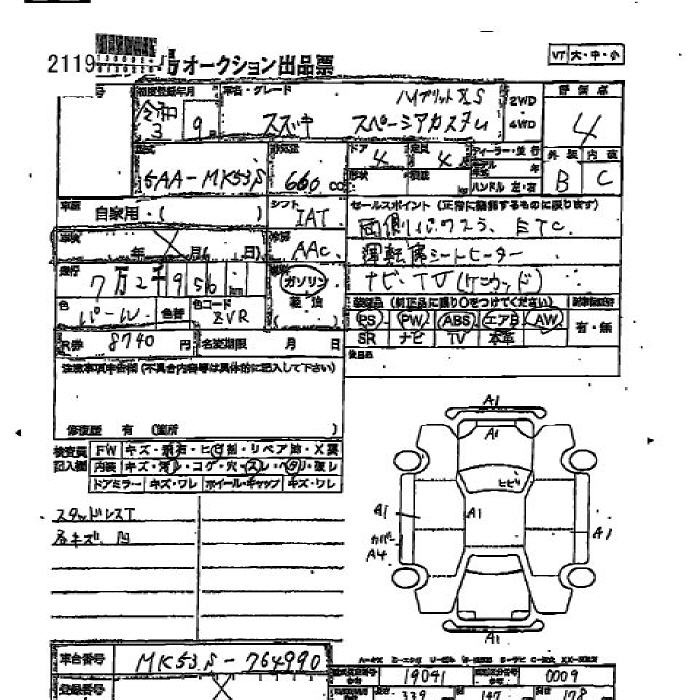 2119 オークション出品票
VT 大・中・小
初度登録年月 車名・グレード ハイブリットXS 2WD・4WD 評価点
令和 3 9 スズキ スペーシアカスタム 4
型式 排気量 ドア 4 定員 4 ディーラー・並行 外装 内装
5AA-MK53S 660 cc 形状 ハンドル 左・右 B C
車歴 自家用・( ) シフト IAT セールスポイント (正常に装備するものに限ります)
両側パワスラ、ETC.
車検 年 月( 日) 冷房 AAC
運転席シートヒーター
走行 7万2千956 燃料 ガソリン 軽油 ( )
ナビ・TV(ケンウッド)
色 パール 色替 色コード ZVR
装備品 (純正品に限り○をつけてください)
PS PW ABS エアB AW 有・無
SR ナビ TV 本革
R券 8740 円 名変期限 月 日
後日品
注意事項申告欄 (不具合内容等は具体的に記入して下さい)
修復歴 有 (箇所 )
検査員 FW キズ・飛石・ヒビ割・リペア跡・X要
記入欄 内装
ドアミラー キズ・ワレ ホイール・キャップ キズ・ワレ
スタッドレスT
小キズ 凹
A1
A1
ヒビ
A1 A1 A1
カバー
A4
A1
車台番号 MK53S-764990
19041 0009
登録番号 339 147 178